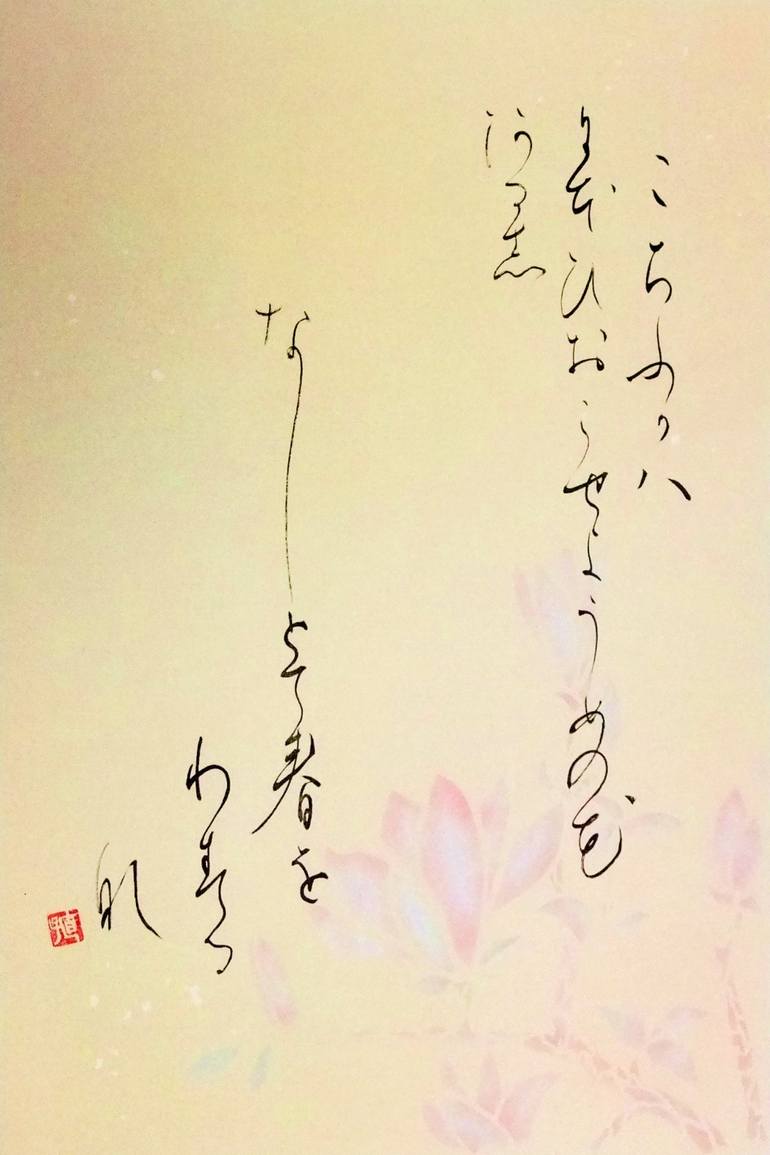 こちふかハ
にほひおこせようめの花
あるし
なしとて春を
わする
な